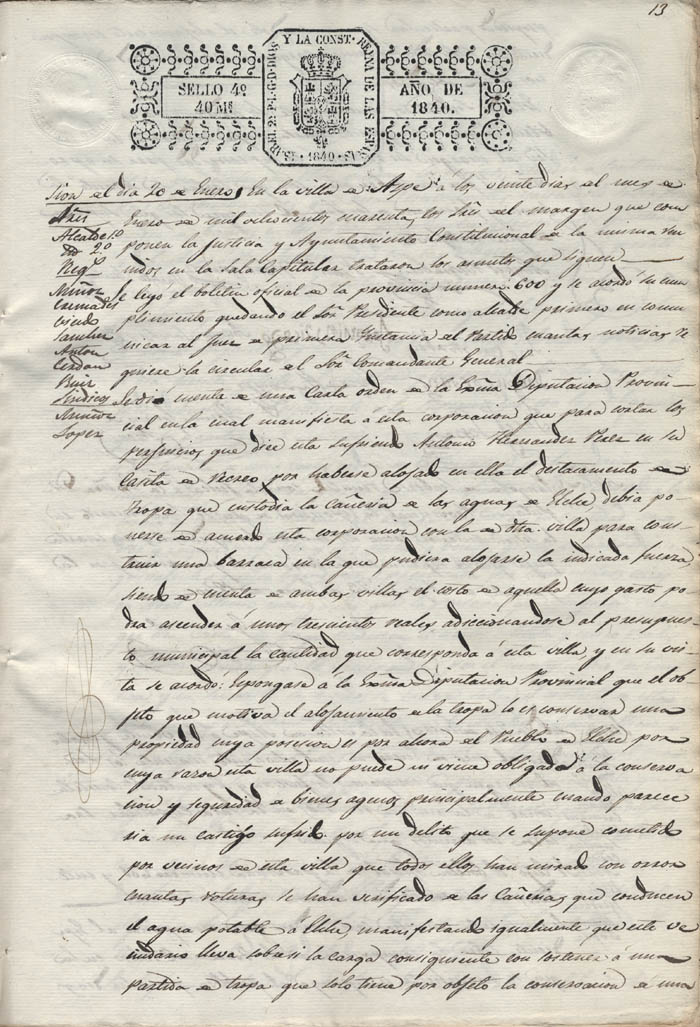 13
ISABEL 2ª P. L. G. D. DIOS Y LA CONST. REINA DE LAS ESPAÑAS
1840
SELLO 4º
40 Ms
AÑO DE
1840.
sion del dia 20 de Enero
Sres
Alcalde 1º
Yd 2º
Regs
Muñoz
Cremades
Sanchez
Anton
Cerdan
Ruiz
Sindicos
Muñoz
Lopez
En la villa de Aspe á los veinte dias del mes de
Enero de mil ochocientos cuarenta, los Sres del margen que com
ponen la Justicia y Ayuntamiento Constitucional de la misma reu
nidos en la Sala Capitular trataron los asuntos que siguen
Se leyó el boletin oficial de la provincia numero 600 y se acordó su cum
plimiento quedando el Sor Presidente como alcalde primero en comu
nicar al Juez de primera Ynstancia del Partido cuantas noticias re
quiere la circular del Sor Comandante General
Se dio cuenta de una Carta orden de la Exma Diputacion Provin
cial en la cual manifiesta á esta corporacion que para cortar los
perjuicios que dice esta sufriendo Antonio Hernandez Perez en su
Casita de recreo por haberse alojado en ella el destacamento de
tropa que custodia la cañeria de las aguas de Elche, debia po
nerse de acuerdo esta corporacion con la de dha. villa para cons
truir una barraca en la que pudiera alojarse la indicada fuerza
siendo de cuenta de ambas villas el costo de aquella cuyo gasto po
dra ascender á unos trescientos reales, adiccionandose al presupues
to municipal la cantidad que corresponda á esta villa, y en su vis
ta se acordó: Espongase á la Exma Diputacion Provincial que el ob
jeto que motiva el alojamiento de la tropa lo es conservar una
propiedad cuya posesion es por ahora del Pueblo de Elche por
cuya razon esta villa no puede ni viene obligada á la conserva
cion y seguridad de bienes agenos principalmente cuando parece
ria un castigo sufrido por un delito que se supone cometido
por vecinos de esta villa que todos ellos han mirado con orror
cuantas roturas se han verificado de las Cañerias que conducen
el agua potable á Elche, manifestando igualmente que este ve
cindario lleva sobre si la carga consiguiente con sostener á una
partida de tropa que solo tiene por objeto la conservacion de una